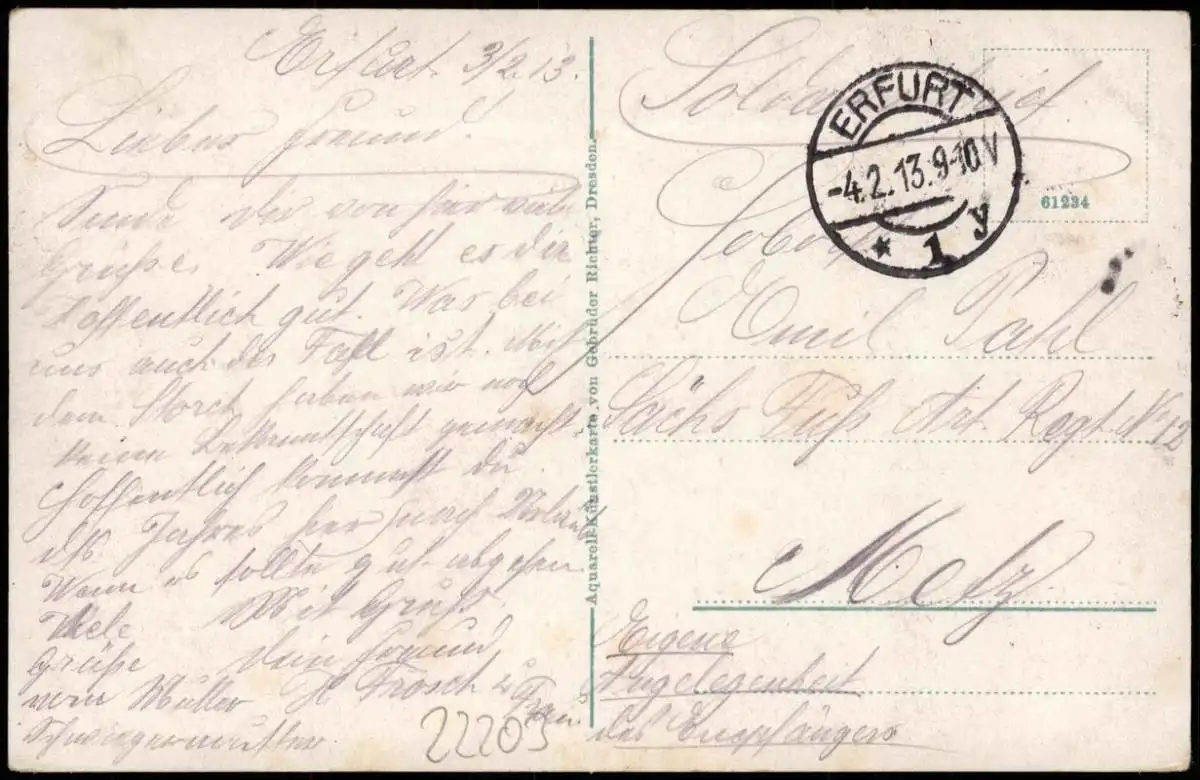 Erfurt. 3/2.13.
Lieber Freund!
Sende dir von hier viele
Grüße. Wie geht es dir
Hoffentlich gut. Was bei
uns auch der Fall ist. Mit
dem Storch haben wir noch
keine Bekanntschaft gemacht
Hoffentlich kommst du
dſs Jahres her zurück
Wenn es sollte gut abgehen
Viele Mit Gruß
Grüße dein Freund
vom Müller H. Frosch u Frau
Schwiegermutter
22203
Aquarell-Künstlerkarte von Gebrüder Richter, Dresden.
ERFURT
-4.2.13.9-10V
* 1 y
61234
Emil Pahl
Sächs Fuſs Art. Regt. No 12
Metz
Eigene
Angelegenheit
des Empfängers